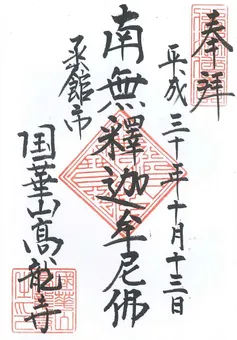 奉拜
平成三十年十月十三日
南無釋迦牟尼佛
函館市
国華山高龍寺